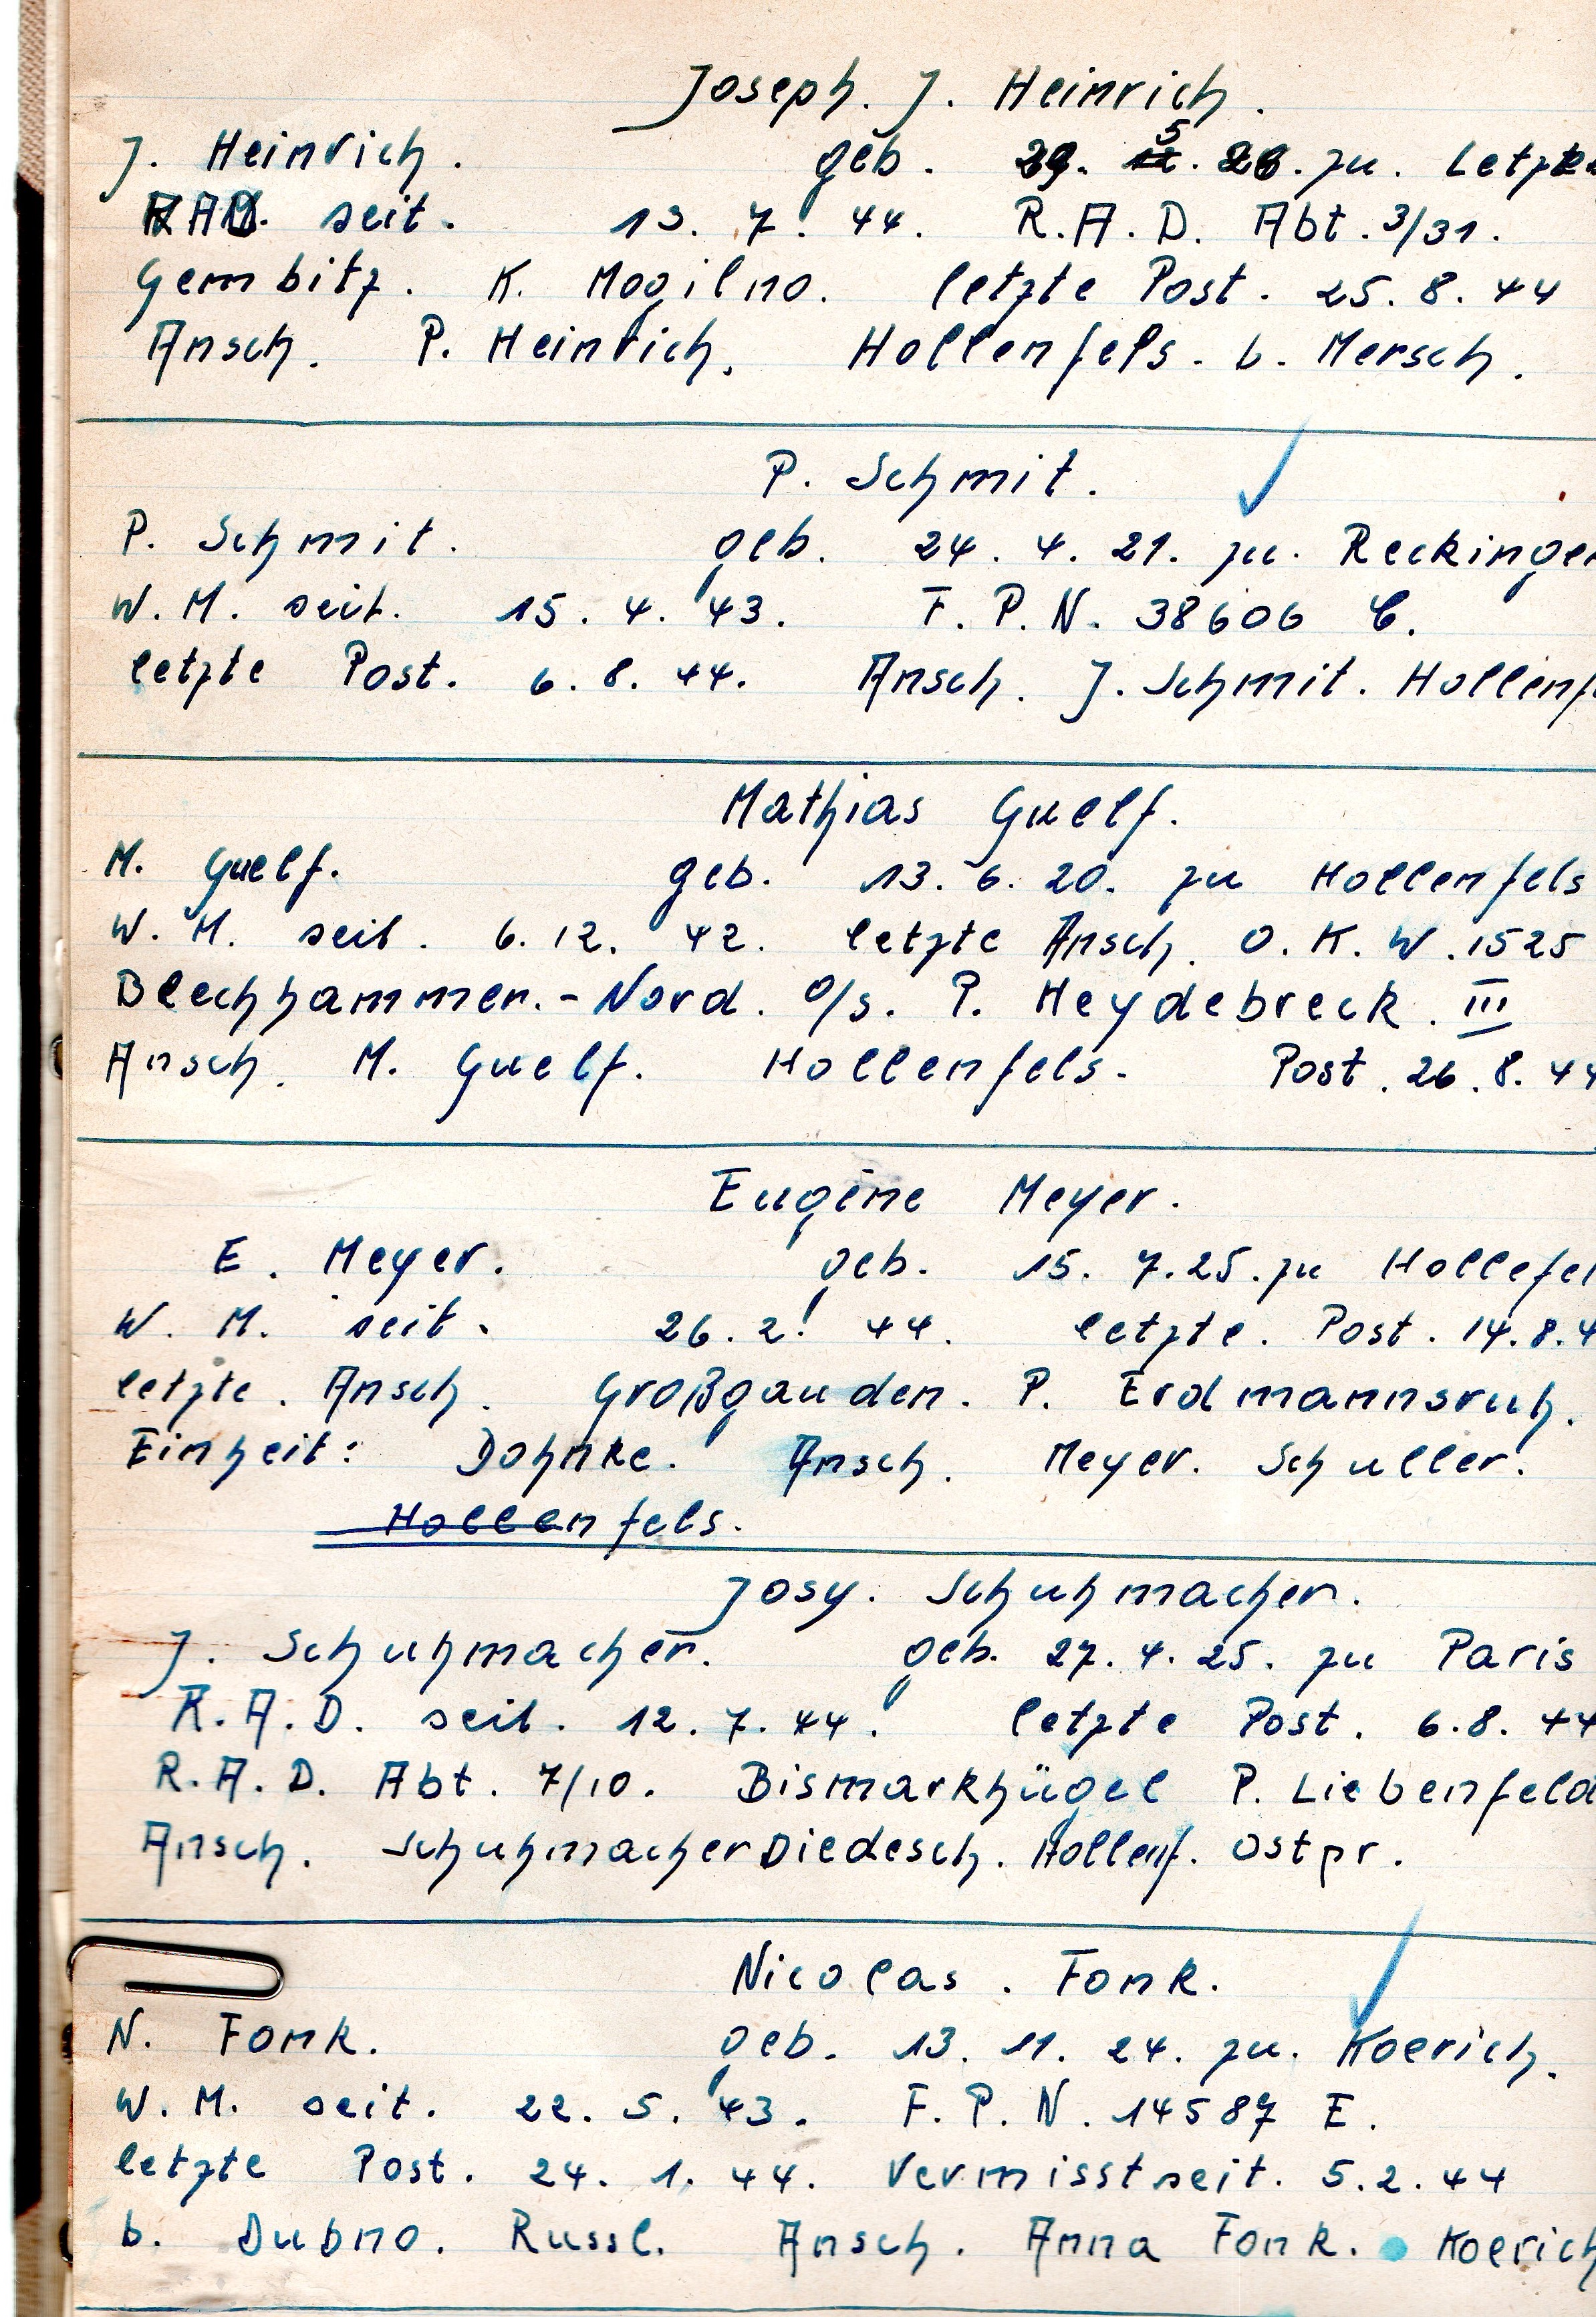 Joseph. J. Heinrich.
J. Heinrich. geb. 29. 5. 26. zu. Letz
RAD. seit. 13. 7. 44. R.A.D. Abt. 3/31.
Gembitz. K. Mogilno. letzte Post. 25. 8. 44
Ansch. P. Heinrich. Hollenfels. b. Mersch.
P. Schmit.
P. Schmit. geb. 24. 4. 21. zu. Reckingen
W. M. seit. 15. 4. 43. F. P. N. 38606 C.
letzte Post. 6. 8. 44. Ansch. J. Schmit. Hollenf
Mathias Guelf.
M. Guelf. geb. 13. 6. 20. zu Hollenfels
W. M. seit. 6. 12. 42. letzte Ansch. O. K. W. 1525
Blechhammer.- Nord. O/s. P. Heydebreck. III
Ansch. M. Guelf. Hollenfels. Post. 26. 8. 44
Eugène Meyer.
E. Meyer. geb. 15. 7. 25. zu Hollefel
W. M. seit. 26. 2. 44. letzte. Post. 14. 8. 4
letzte. Ansch. Großgauden. P. Erdmannsruh.
Einheit: Dohnke. Ansch. Meyer. Schuller.
Hollenfels.
Josy. Schuhmacher.
J. Schuhmacher. geb. 27. 4. 25. zu Paris
R. A. D. seit. 12. 7. 44. letzte Post. 6. 8. 44
R. A. D. Abt. 7/10. Bismarkhügel P. Liebenfeld
Ansch. Schuhmacher Diedesch. Hollenf. Ostpr.
Nicolas. Fonk.
N. Fonk. geb. 13. 11. 24. zu. Koerich.
W. M. seit. 22. 5. 43. F. P. N. 14587 E.
letzte Post. 24. 1. 44. Vermisst seit. 5. 2. 44
b. Dubno. Russl. Ansch. Anna Fonk. Koerich